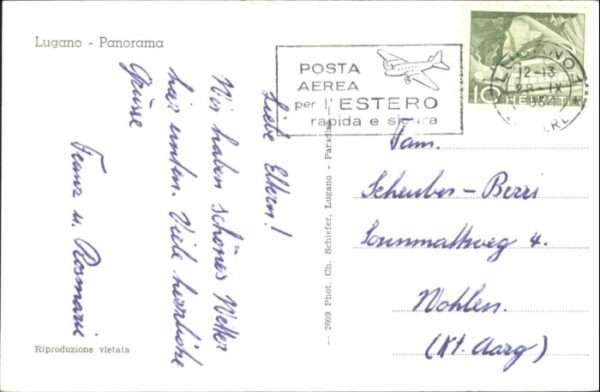 Lugano - Panorama
POSTA
AEREA
per l'ESTERO
rapida e sicura
LUGANO 1
12-13
28-IX
10 HELVETIA
Liebe Eltern!
Wir haben schönes Wetter
hier unten. Viele herzliche
Grüsse
Franz u. Rosmarie
— 2809 Phot. Ch. Schiefer, Lugano - Paradiso
Fam.
Scheuber-Berri
Sonnmattweg 4.
Wohlen.
(Kt. Aarg)
Riproduzione vietata